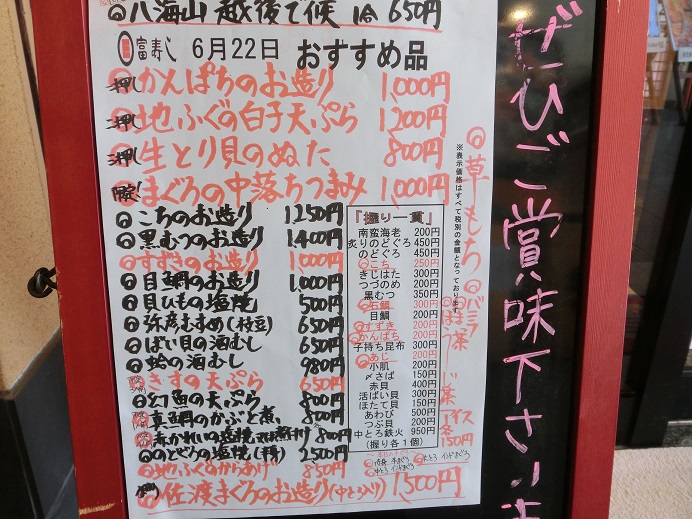 ◎八海山 越後で候 1合 650円
富寿し 6月22日 おすすめ品
押し かんぱちのお造り 1,000円
押し 地ふぐの白子天ぷら 1200円
押し 生とり貝のぬた 800円
限定 まぐろの中落ちつまみ 1,000円
◎こちのお造り 1250円
◎黒むつのお造り 1,400円
◎すずきのお造り 1,000円
◎目鯛のお造り 1,000円
◎貝ひもの塩焼 500円
◎弥彦むすめ(枝豆) 650円
◎ばい貝の酒むし 650円
◎蛤の酒むし 980円
きすの天ぷら 650円
幻魚の天ぷら 800円
真鯛のかぶと煮 800円
赤かれいの塩焼 又は煮付 800円
◎のどぐろの塩焼(半身) 2500円
◎地ふぐのからあげ 850円
佐渡まぐろのお造り(中とろ入り) 1,500円
「握り一貫」
南蛮海老 200円
炙りのどぐろ 450円
のどぐろ 450円
◎こち 250円
きじはた 300円
つづのめ 200円
黒むつ 350円
◎石鯛 300円
目鯛 200円
◎すずき 200円
◎かんぱち 200円
子持ち昆布 300円
◎あじ 200円
小肌 200円
〆さば 150円
赤貝 400円
活ばい貝 300円
ほたて貝 150円
あわび 500円
つぶ貝 200円
中とろ鉄火 950円
(握り各1個)
※表示価格はすべて税別の金額となっております。
◎草もち
◎バニラ
◎ほうじ茶
アイス
各150円
ぜひご賞味下さいませ